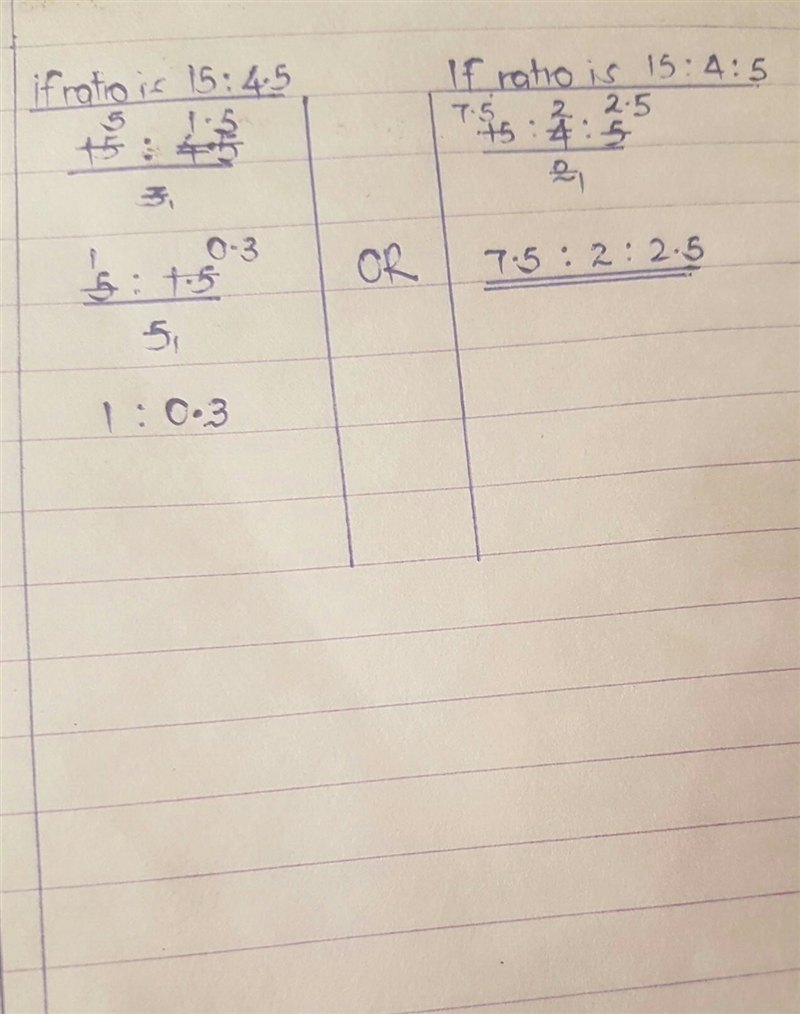 if ratio is 15 : 4.5
5 1.5
15 : 4.5
3 1
1 0.3
5 : 1.5
5 1
1 : 0.3
OR
If ratio is 15 : 4 : 5
7.5 2 2.5
15 : 4 : 5
2 1
7.5 : 2 : 2.5